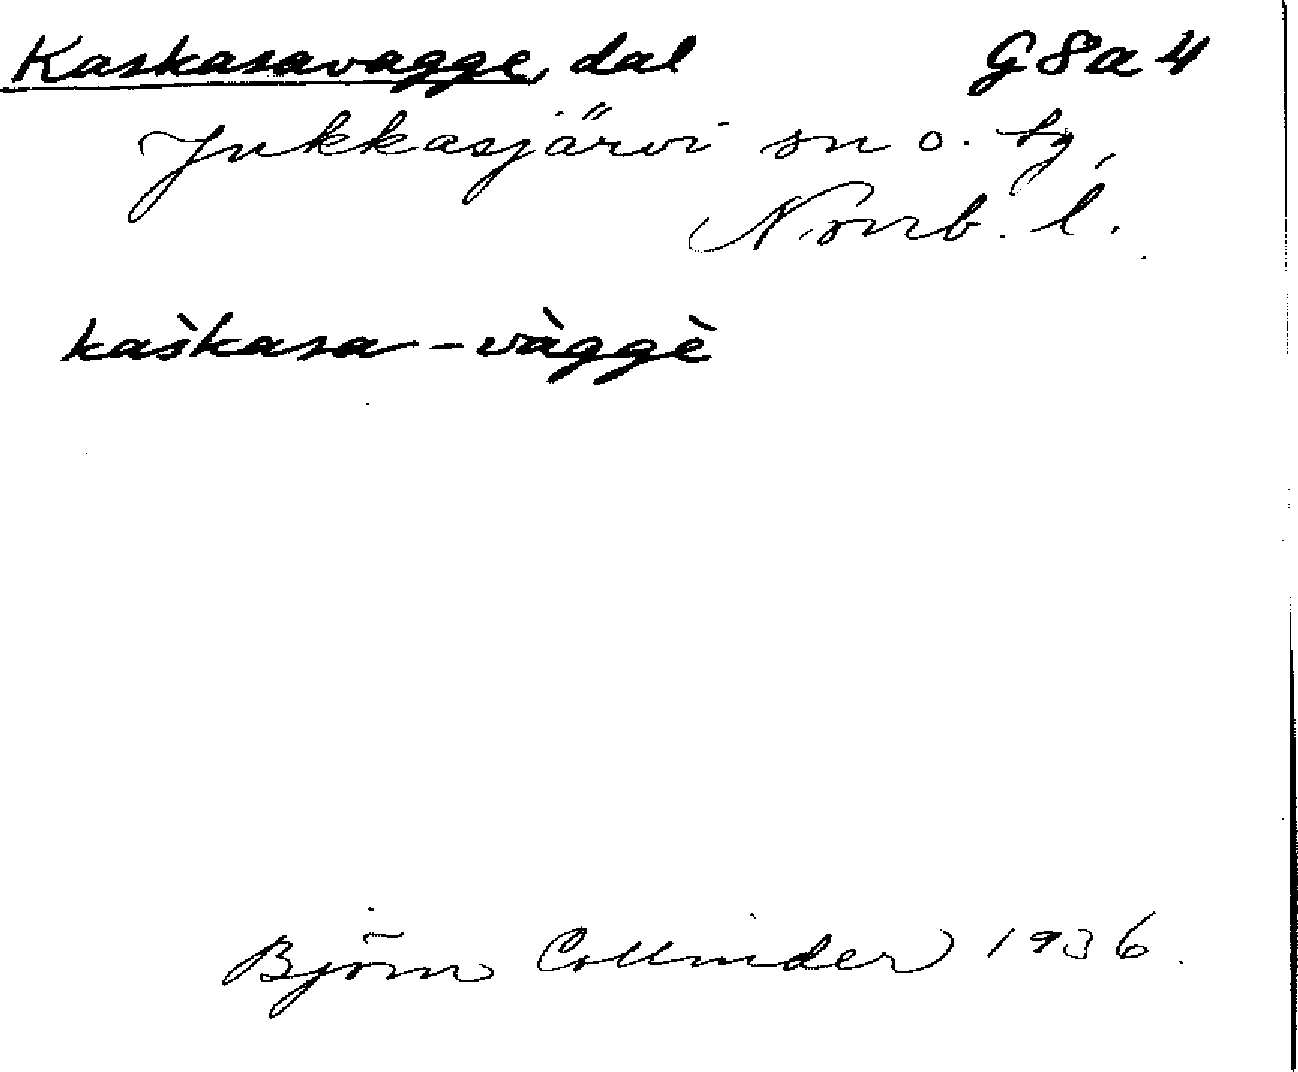 Kaskasavagge, dal G8a4
Jukkasjärvi sn o. tg,
Norrb. l.
kas̀kasa-vàggè
Björn Collinder 1936.